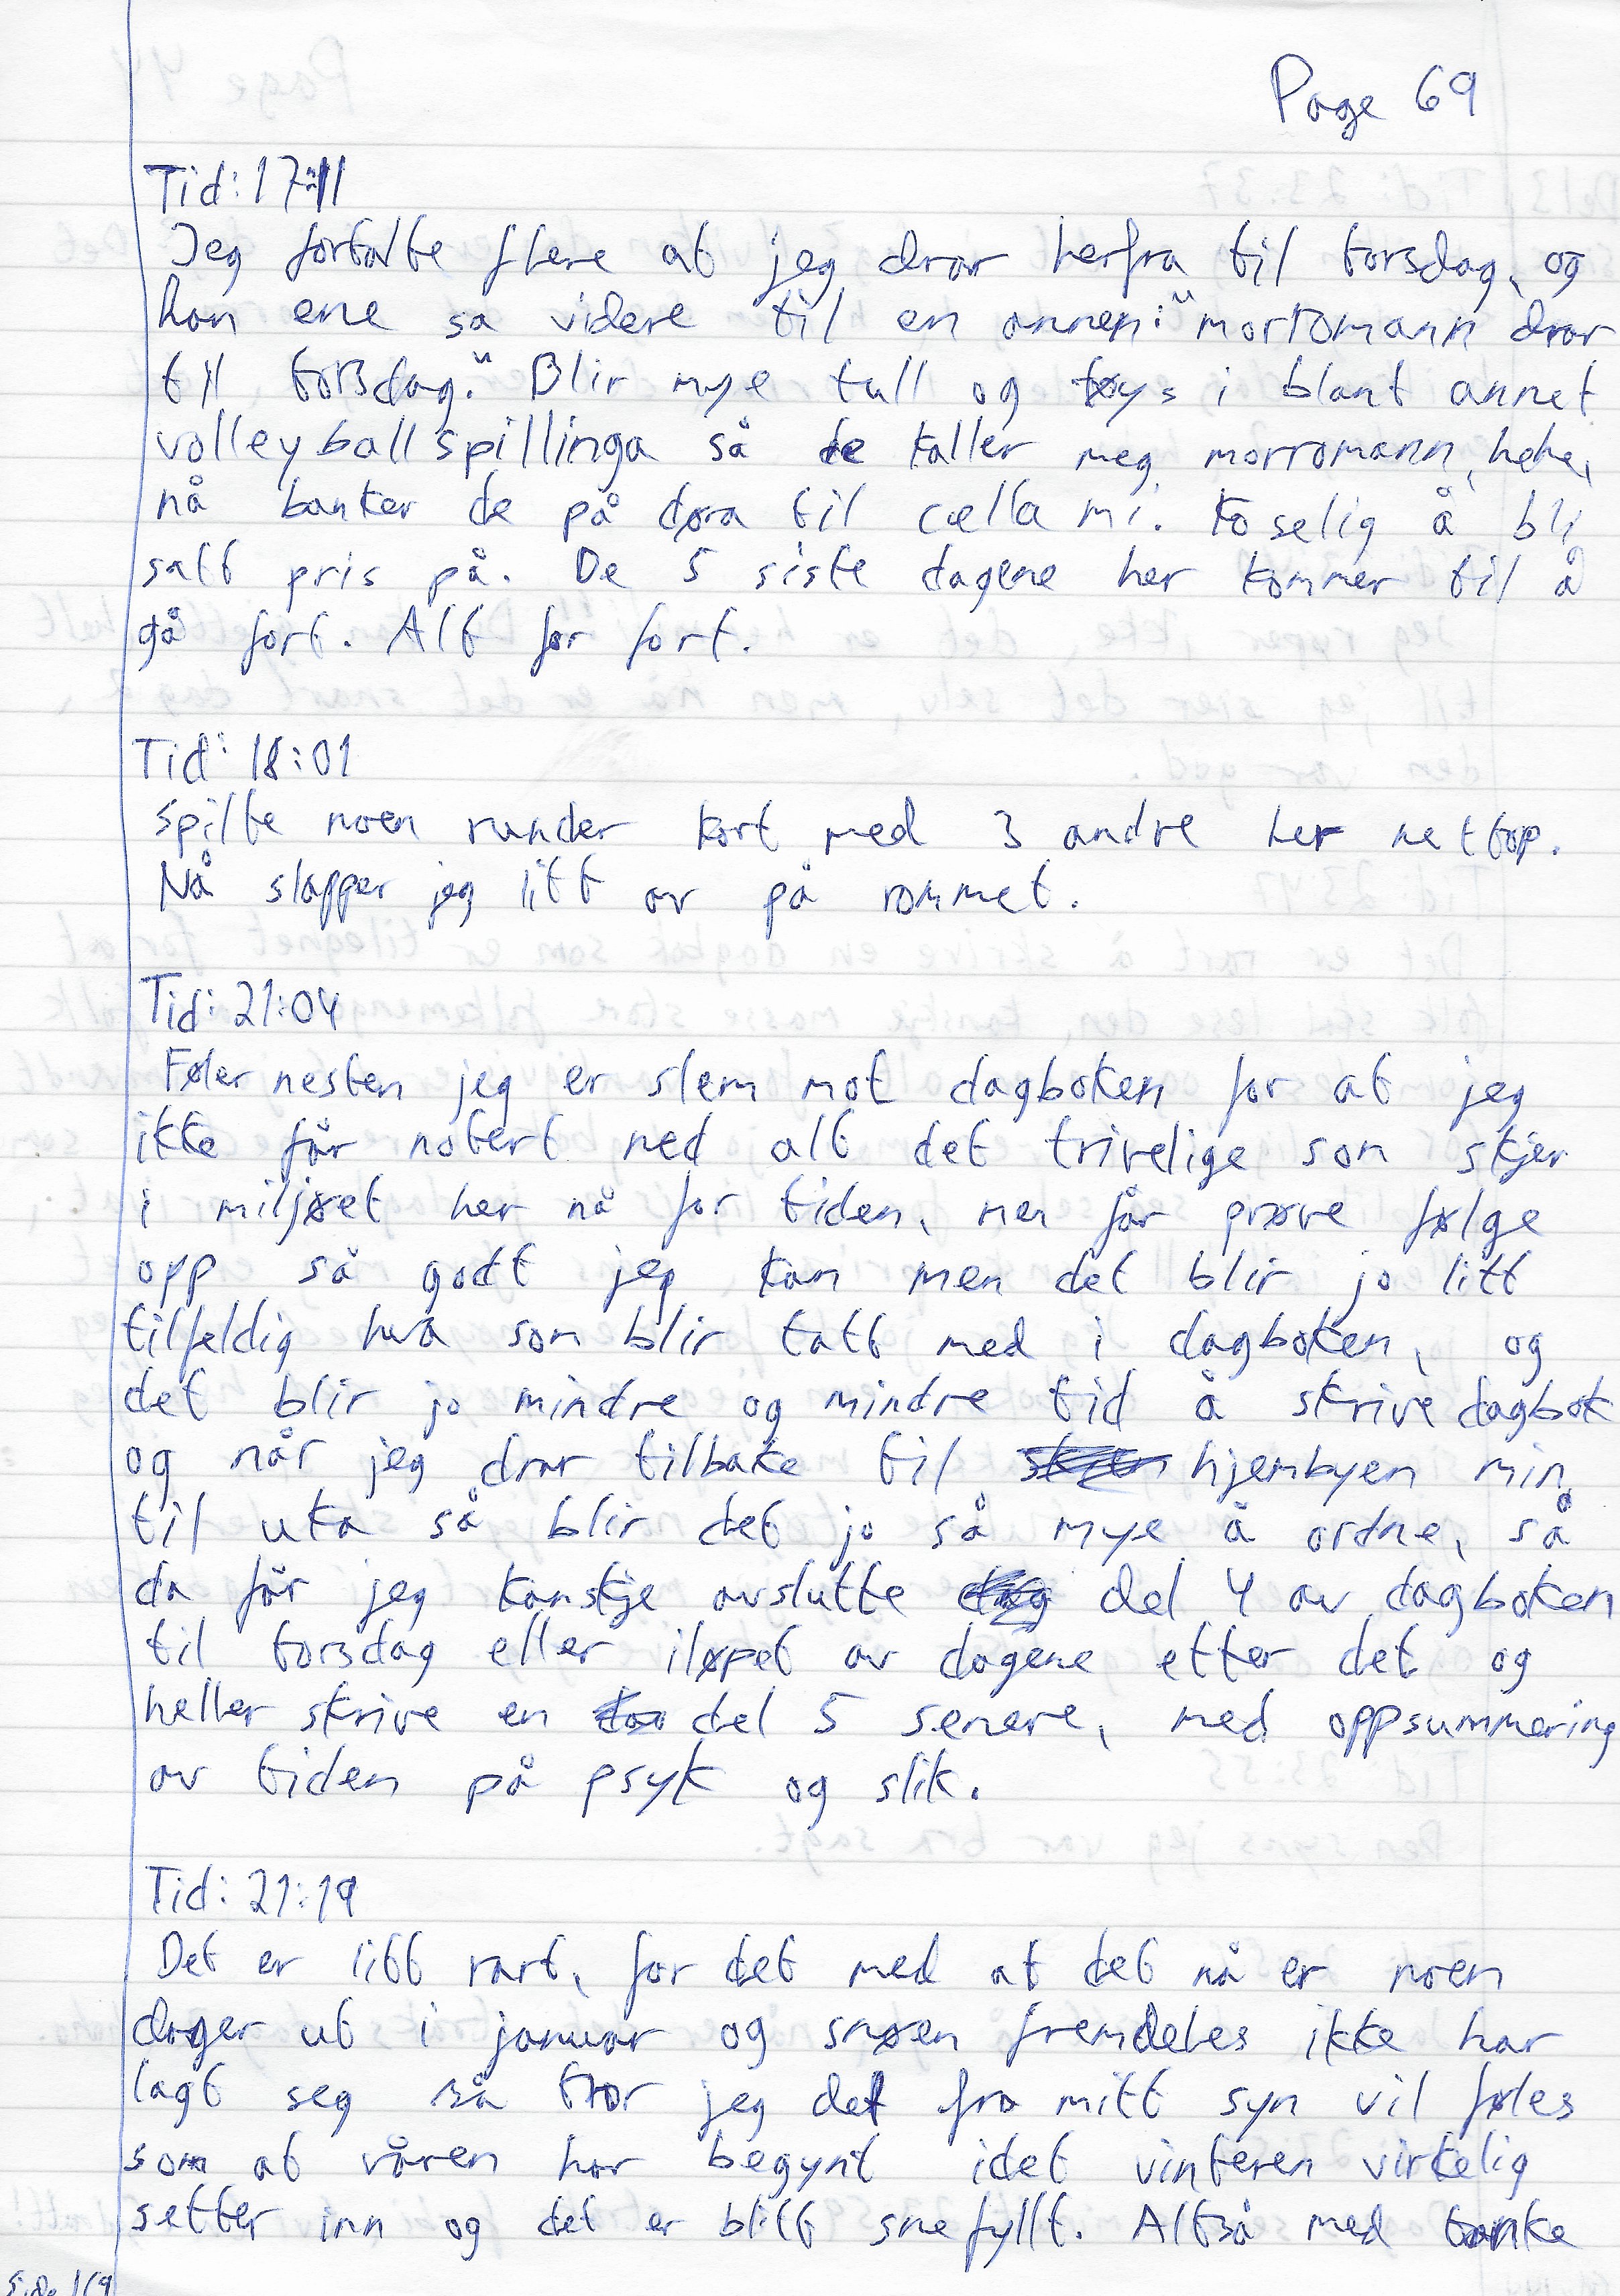 Page 69
Tid: 17:11
Jeg fortalte flere at jeg drar herfra til torsdag, og
han ene sa videre til en annen: "morromann drar
til torsdag." Blir mye tull og tøys i blant annet
volleyballspillinga så de kaller meg morromann, hehe,
nå banker de på døra til cella mi. Koselig å bli
satt pris på. De 5 siste dagene her kommer til å
gå fort. Alt for fort.
Tid: 18:01
Spilte noen runder kort med 3 andre her nettop.
Nå slapper jeg litt av på rommet.
Tid: 21:04
Føler nesten jeg er slem mot dagboken for at jeg
ikke får notert ned alt det trivelige som skjer
i miljøet her nå for tiden, men får prøve følge
opp så godt jeg kan men det blir jo litt
tilfeldig hva som blir tatt med i dagboken, og
det blir jo mindre og mindre tid å skrive dagbok
og når jeg drar tilbake til hjembyen min
til uka så blir det jo så mye å ordne, så
da får jeg kanskje avslutte del 4 av dagboken
til torsdag eller iløpet av dagene etter det og
heller skrive en del 5 senere, med oppsummering
av tiden på psyk og slik.
Tid: 21:19
Det er litt rart, for det med at det nå er noen
dager ut i januar og snøen fremdeles ikke har
lagt seg så tror jeg det fra mitt syn vil føles
som at våren har begynt idet vinteren virkelig
setter inn og det er blitt snefyllt. Altså med tanke